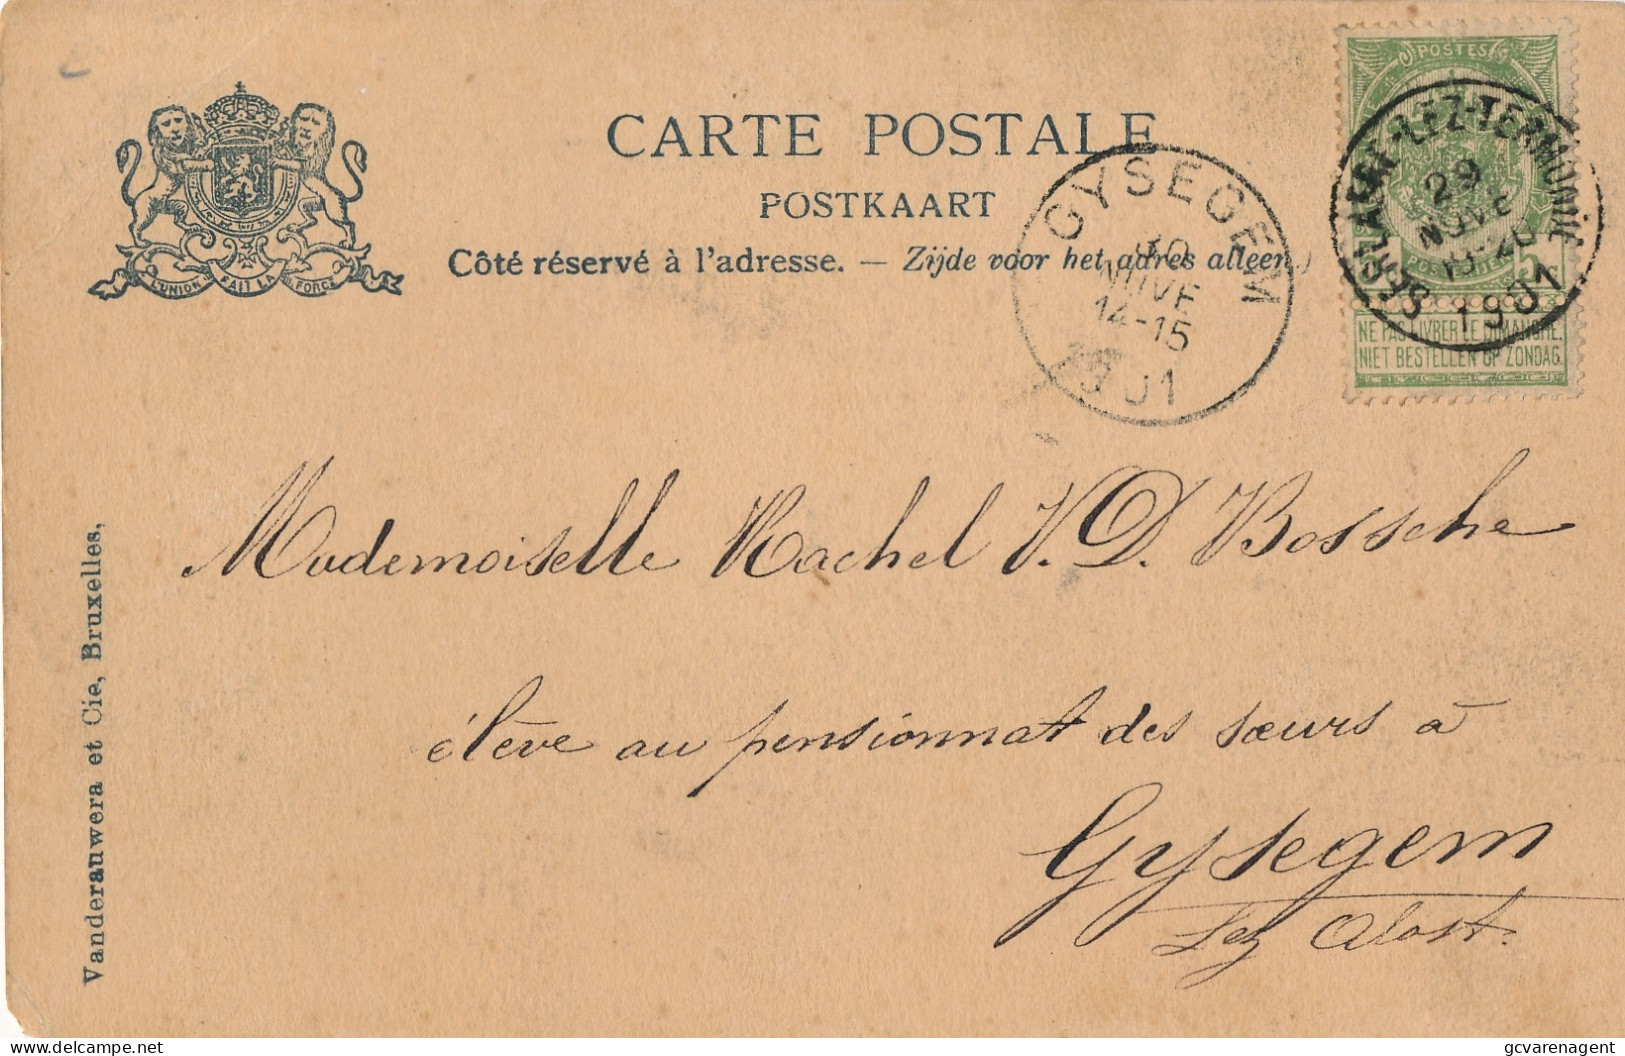 CARTE POSTALE
POSTKAART
Côté réservé à l'adresse. — Zijde voor het adres alleen.)
L'UNION FAIT LA FORCE
POSTES
NE PAS LIVRER LE DIMANCHE.
NIET BESTELLEN OP ZONDAG.
-LEZ-TERMONDE
29
NOVE
1901
GYSEGEM
30
NOVE
14-15
1901
Mademoiselle Rachel V. D. Bossche
élève au pensionnat des sœurs à
Gysegem
Lez Alost.
Vanderauwera et Cie, Bruxelles,
gcvarenagent